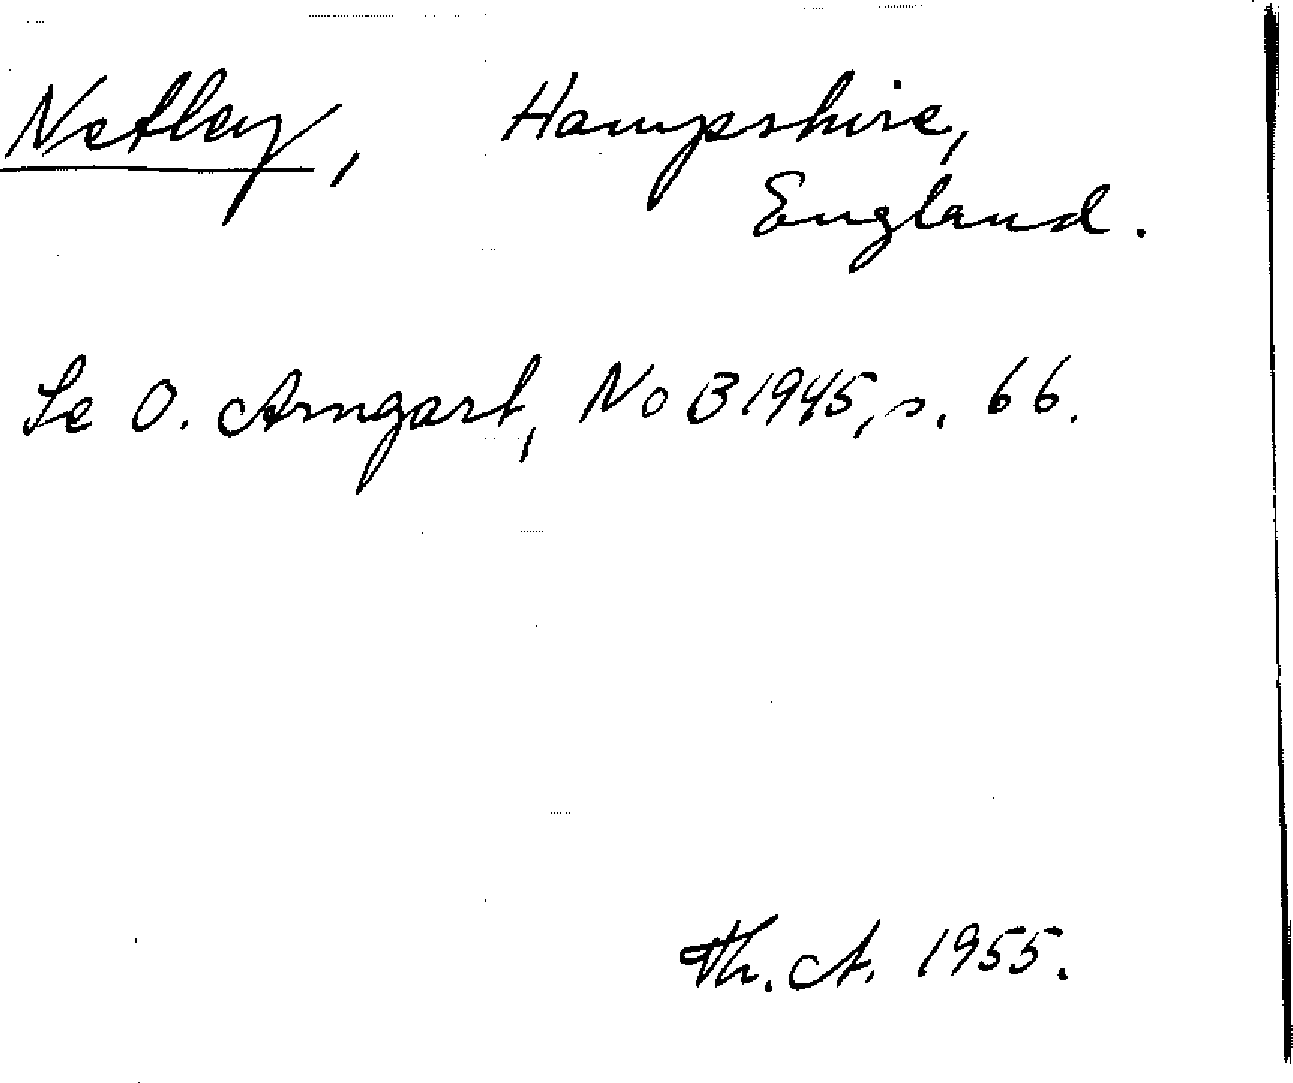 Netley, Hampshire,
England.
Se O. Arngart, NoB 1945, s. 66.
Th. A. 1955.